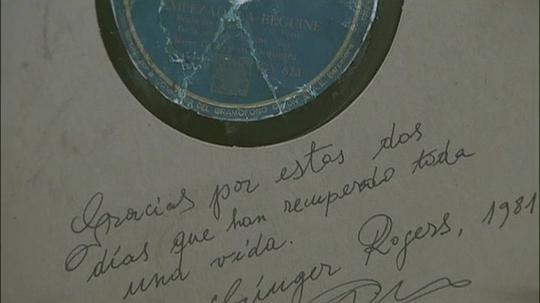 BEGUINE
DEL GRAMOFONO
Gracias por estos dos
días que han recuperado toda
una vida.
Ginger Rogers, 1981